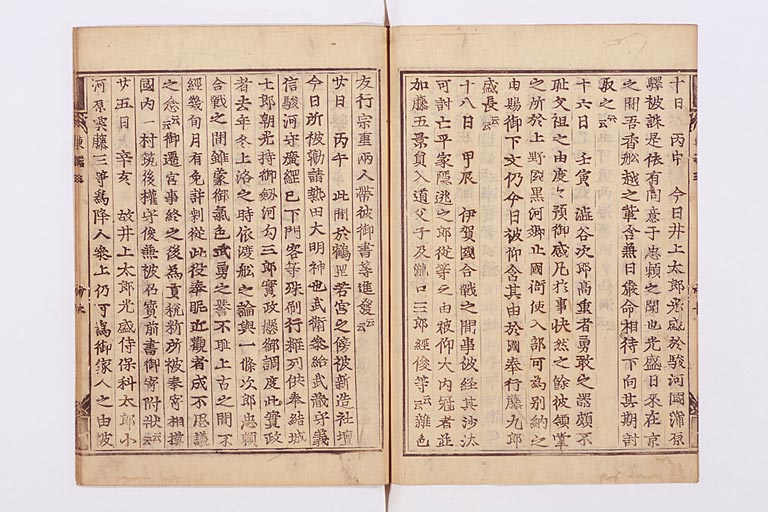 十日 丙申 今日井上太郎光盛於駿河國蒲原
驛被誅是依有同意于忠頼之聞也光盛日来在京
之間吉香舩越之輩含兼日嚴命相待下向其期討
取之云云
十六日 壬寅 澁谷次郎高重者勇敢之器頗不
耻父祖之由度々預御感凡於事快然之餘彼領掌
之所於上野國黒河郷止國衙使入部可為別納之
由賜御下文仍今日被仰含其由於國奉行藤九郎
盛長云云
十八日 甲辰 伊賀國合戰之間事被經其沙汰
可討亡平家隠逃之郎従等之由被仰大内冠者並
加藤五景員入道父子及瀧口三郎經俊等云云雜色
友行宗重兩人帶彼御書等進發云云
廿日 丙午 此間於鶴罡若宮之傍被新造社壇
今日所被勧請熱田大明神也武衛參給武藏守義
信駿河守廣經已下門客等殊刷行粧列供奉結城
七郎朝光持御劔河勾三郎實政懸御調度此實政
者去年冬上洛之時依渡船之論與一條次郎忠頼
合戰之間雖蒙御氣色武勇之譽不耻上古之間不
經幾旬月有免許剰従此役奉眤近觀者成不思議
之念云云御遷宮事終之後為貢税所被奉寄相摸
國内一村筑後權守俊兼被召寳前書御寄附状云云
廿五日 辛亥 故井上太郎光盛侍保科太郎小
河原雲藤三等為降人參上仍可為御家人之由被